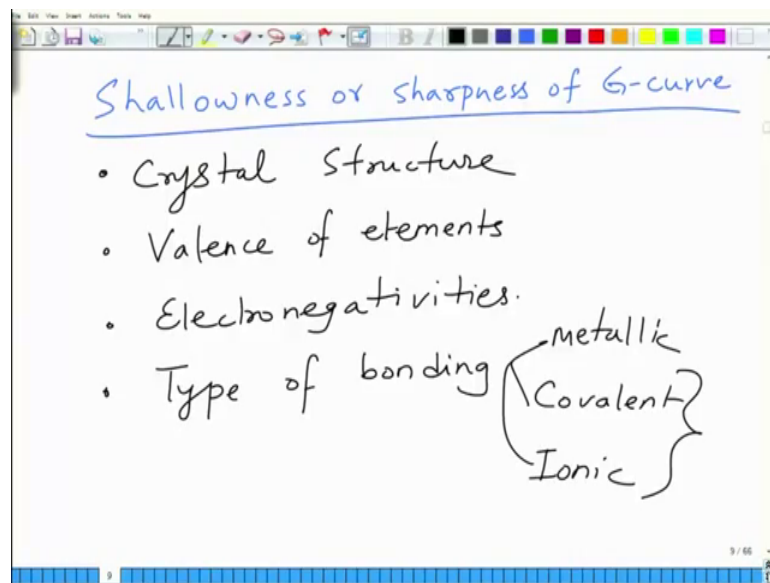 File Edit View Insert Actions Tools Help
B I
Shallowness or sharpness of G-curve
• Crystal Structure
• Valence of elements
• Electronegativities.
• Type of bonding
metallic
Covalent
Ionic
9 / 66
9